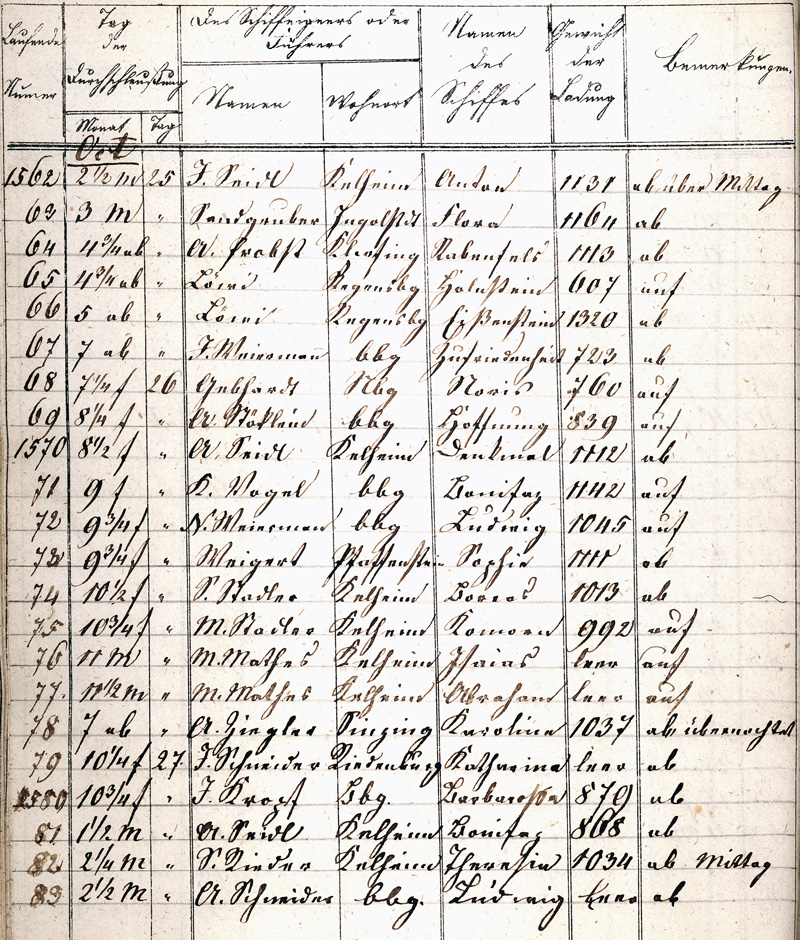 Laufende Numer | Tag der Durchschleußung | Des Schiffeigners oder Führers | Namen des Schiffes | Gewicht der Ladung | Bemerkungen.
Monat | Tag | Namen | Wohnort
Oct
1562 2½ M 25 J. Seidl Kelheim Anton 1131 ab über Mittag
63 3 M " Sandgruber Ingolstdt Flora 1164 ab
64 4¾ ab " A. Probst Rabenfels 1113 ab
65 4¾ ab " Löwi Regensbg Holnstein 607 auf
66 5 ab " Löwi Regensbg 1320 ab
67 7 ab " J. Weiermann bbg Zufriedenheit 723 ab
68 7¼ f 26 Gebhardt Nbg Noris 760 auf
69 8¼ f " A. Stöklein bbg Hoffnung 839 auf
1570 8½ f " A. Seidl Kelheim Denkmal 1112 ab
71 9 f " K. Vogel bbg Bonifaz 1142 auf
72 9¾ f " N. Weierman bbg Ludwig 1045 auf
73 9¾ f " Weigert Pfaffenstein Sophie 1111 ab
74 10½ f " S. Stadler Kelheim Boreas 1013 ab
75 10¾ f " M. Stadler Kelheim Komorn 992 auf
76 11 M " M. Mathes Kelheim Isaias leer auf
77. 11½ M " M. Mathes Kelheim Abraham leer auf
78 7 ab " A. Ziegler Sinzing Karolina 1037 ab übernachtet
79 10¼ f 27 J. Schneider Riedenburg Katharina leer ab
1580 10¾ f " J. Kropf Bbg. Barbarossa 879 ab
81 1½ M " A. Seidl Kelheim Bonifaz 868 ab
82 2¼ M " S. Rieder Kelheim Theresia 1034 ab Mittag
83 2½ M " A. Schneider bbg. Ludwig leer ab